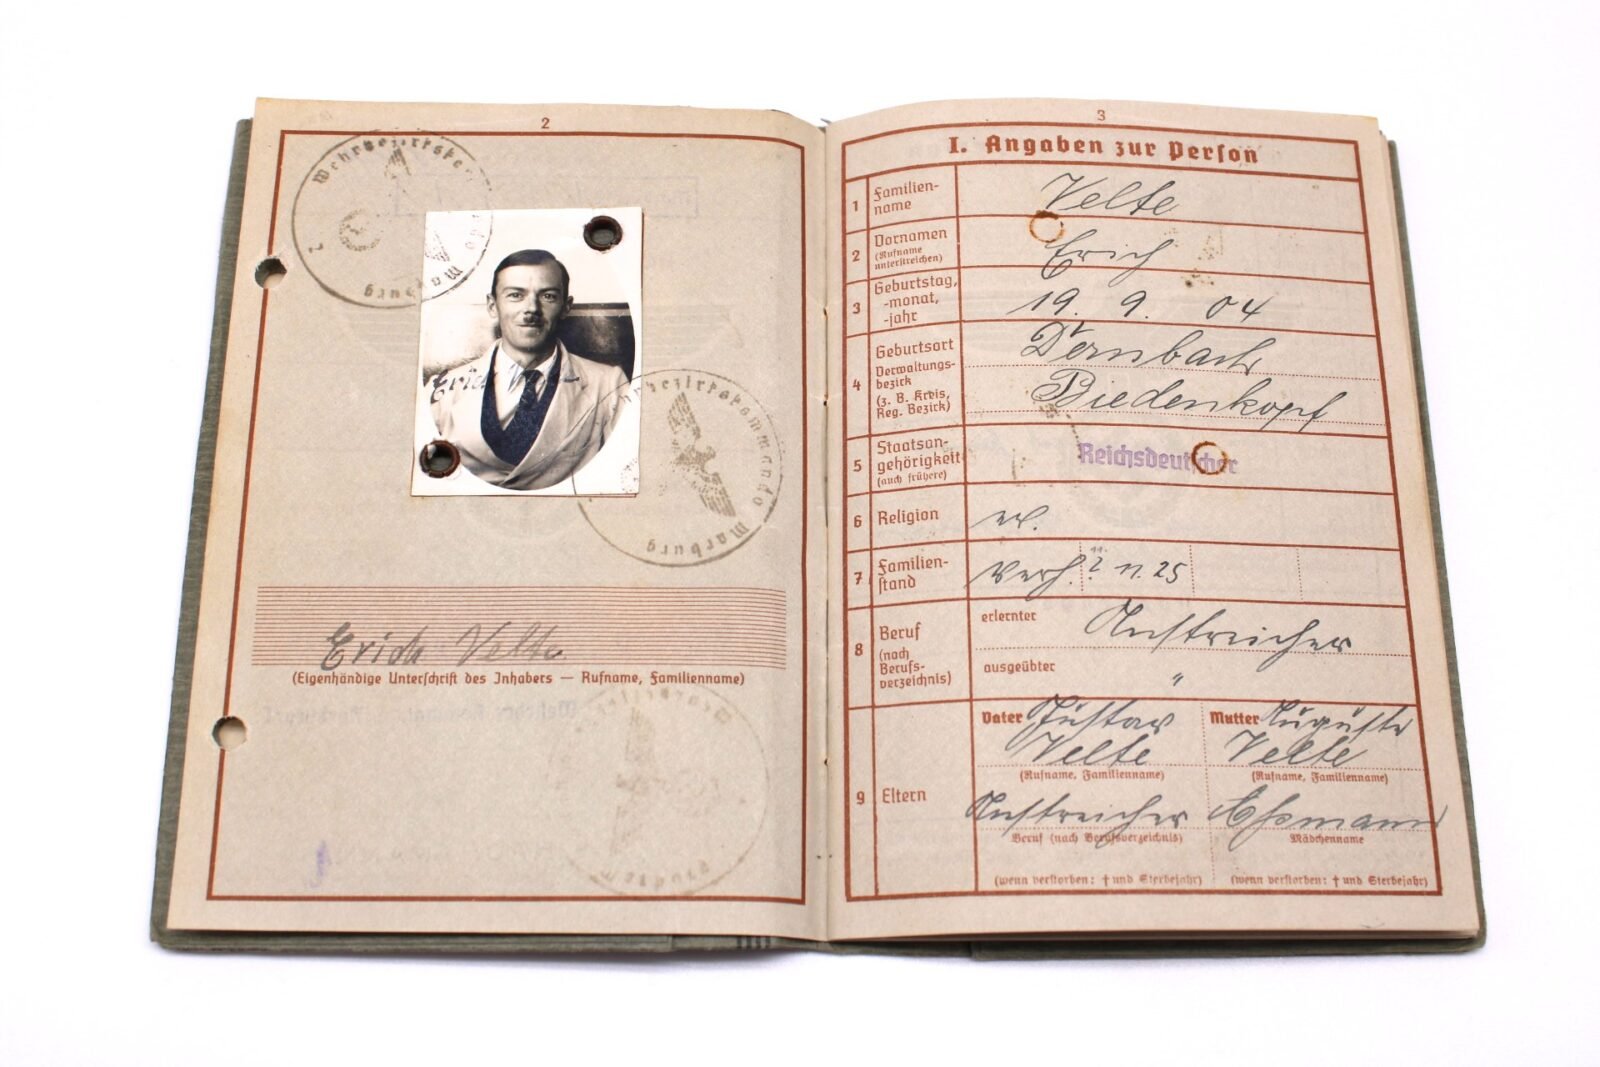 2
Wehrbezirkskommando Marburg
2
Erich Velte
Wehrbezirkskommando Marburg
Erich Velte
(Eigenhändige Unterschrift des Inhabers — Rufname, Familienname)
Marburg
3
I. Angaben zur Person
1 Familien-
name
Velte
2 Vornamen
(Rufname
unterstreichen)
Erich
3 Geburtstag,
-monat,
-jahr
19. 9. 04
4 Geburtsort
Verwaltungs-
bezirk
(z. B. Kreis,
Reg. Bezirk)
Dernbach
Biedenkopf
5 Staatsan-
gehörigkeit
(auch frühere)
Reichsdeutscher
6 Religion
ev.
7 Familien-
stand
verh. 11. 25
8 Beruf
(nach
Berufs-
verzeichnis)
erlernter Anstreicher
ausgeübter "
9 Eltern
Vater Gustav
Velte
(Rufname, Familienname)
Anstreicher
Beruf (nach Berufsverzeichnis)
(wenn verstorben: † und Sterbejahr)
Mutter Auguste
Velte
(Rufname, Familienname)
Mädchenname
(wenn verstorben: † und Sterbejahr)